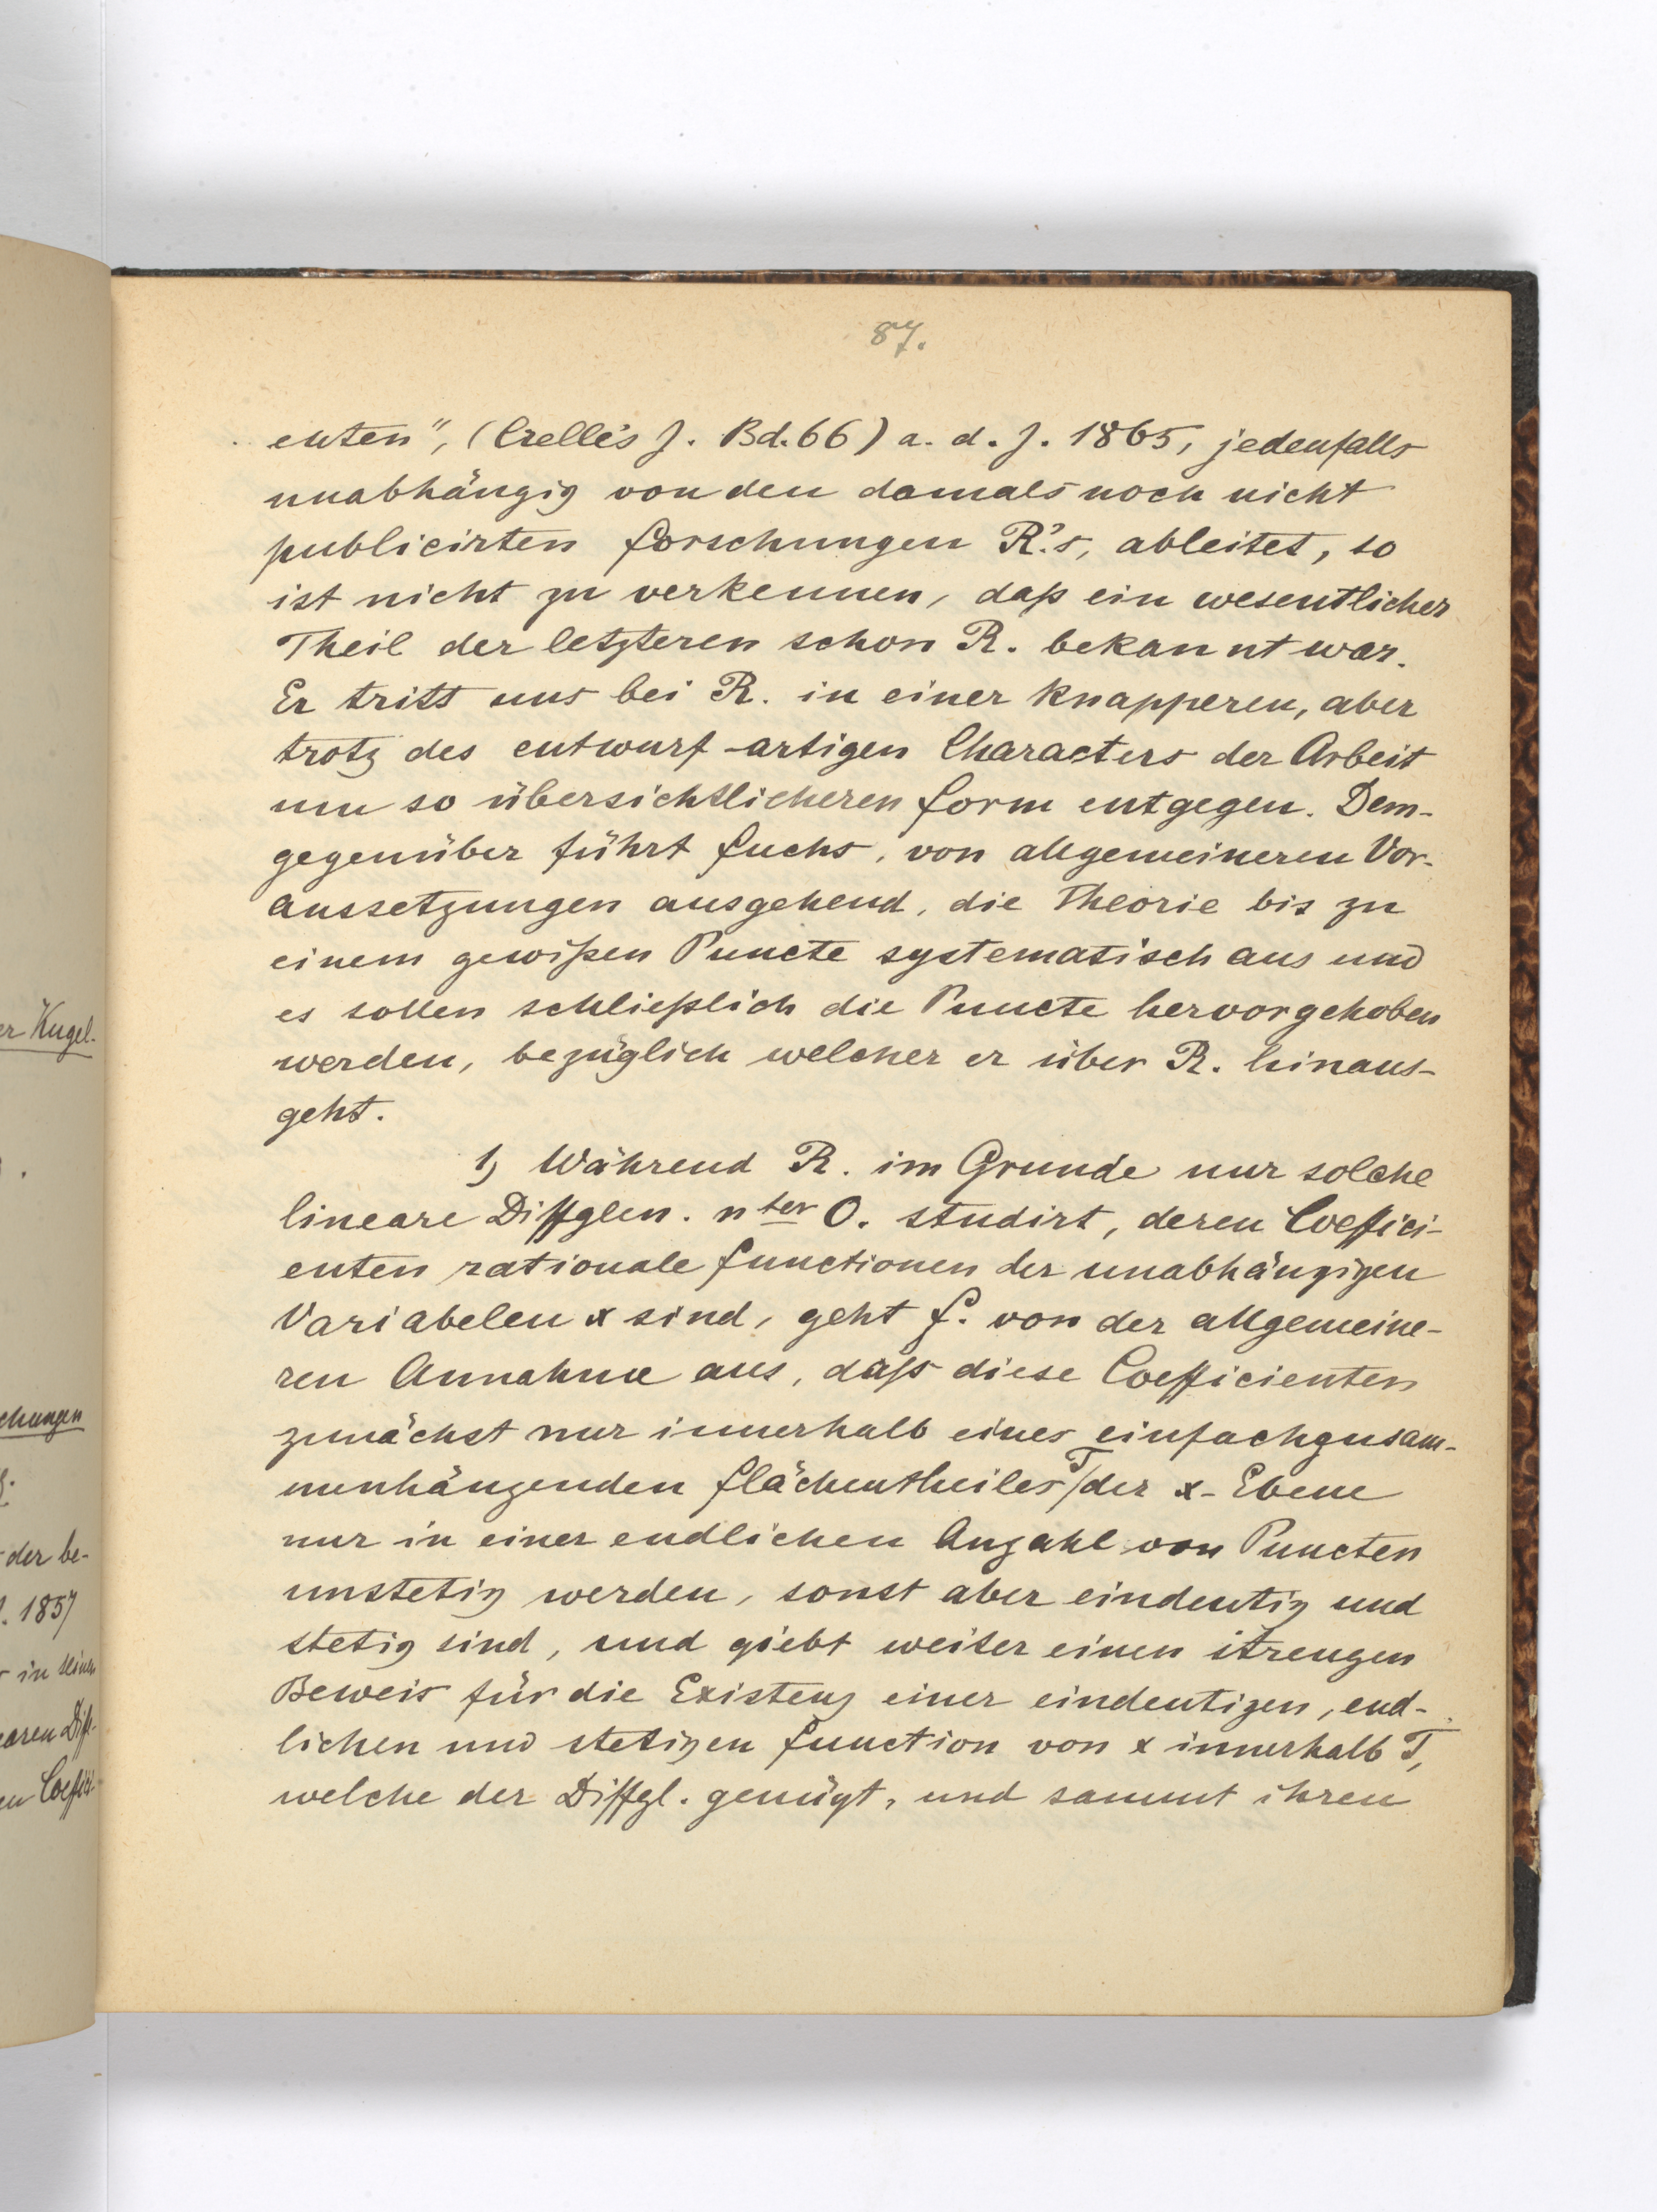 87.
enten", (Crelle's J. Bd. 66) a. d. J. 1865, jedenfalls
unabhängig von den damals noch nicht
publicirten Forschungen R.'s, ableitet, so
ist nicht zu verkennen, daß ein wesentlicher
Theil der letzteren schon R. bekannt war.
Er tritt uns bei R. in einer knapperen, aber
trotz des entwurf-artigen Characters der Arbeit
um so übersichtlicheren Form entgegen. Dem-
gegenüber führt Fuchs, von allgemeineren Vor-
aussetzungen ausgehend, die Theorie bis zu
einem gewißen Puncte systematisch aus und
es sollen schließlich die Puncte hervorgehoben
werden, bezüglich welcher er über R. hinaus-
geht.
1) Während R. im Grunde nur solche
lineare Diffglen. nter O. studirt, deren Coeffici-
enten rationale Functionen der unabhängigen
Variabelen x sind, geht F. von der allgemeine-
ren Annahme aus, daß diese Coefficienten
zunächst nur innerhalb eines einfachzusam-
menhängenden Flächentheiles T der x-Ebene
nur in einer endlichen Anzahl von Puncten
unstetig werden, sonst aber eindeutig und
stetig sind, und giebt weiter einen strengen
Beweis für die Existenz einer eindeutigen, end-
lichen und stetigen Function von x innerhalb T,
welche der Diffgl. genügt, und sammt ihren
er Kugel-
chungen
der be-
J. 1857
in seinen
earen Diff-
en Coeffici-